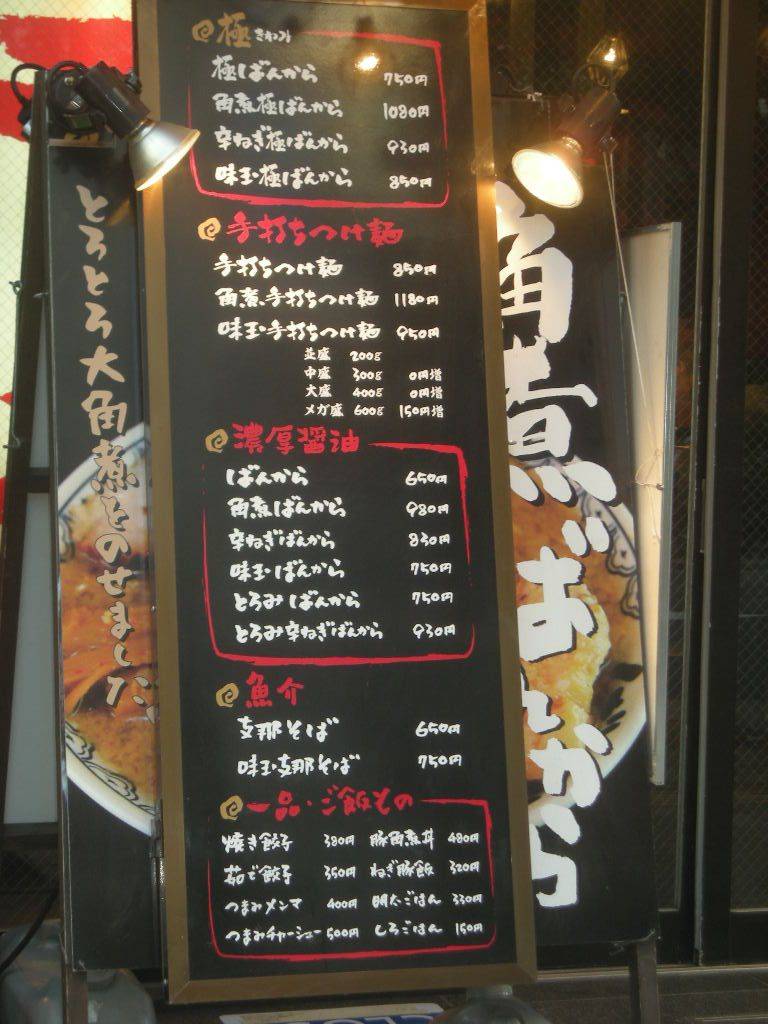 極 きわみ
極ばんから 750円
角煮極ばんから 1080円
辛ねぎ極ばんから 930円
味玉極ばんから 850円
手打ちつけ麺
手打ちつけ麺 850円
角煮手打ちつけ麺 1180円
味玉手打ちつけ麺 950円
並盛 200g
中盛 300g 0円増
大盛 400g 0円増
メガ盛 600g 150円増
濃厚醤油
ばんから 650円
角煮ばんから 980円
辛ねぎばんから 830円
味玉ばんから 750円
とろみばんから 750円
とろみ辛ねぎばんから 930円
魚介
支那そば 650円
味玉支那そば 750円
一品・ご飯もの
焼き餃子 380円 豚角煮丼 480円
茹で餃子 350円 ねぎ豚飯 320円
つまみメンマ 400円 明太ごはん 330円
つまみチャーシュー 500円 しろごはん 150円
とろとろ大角煮をのせました
角煮ばんから